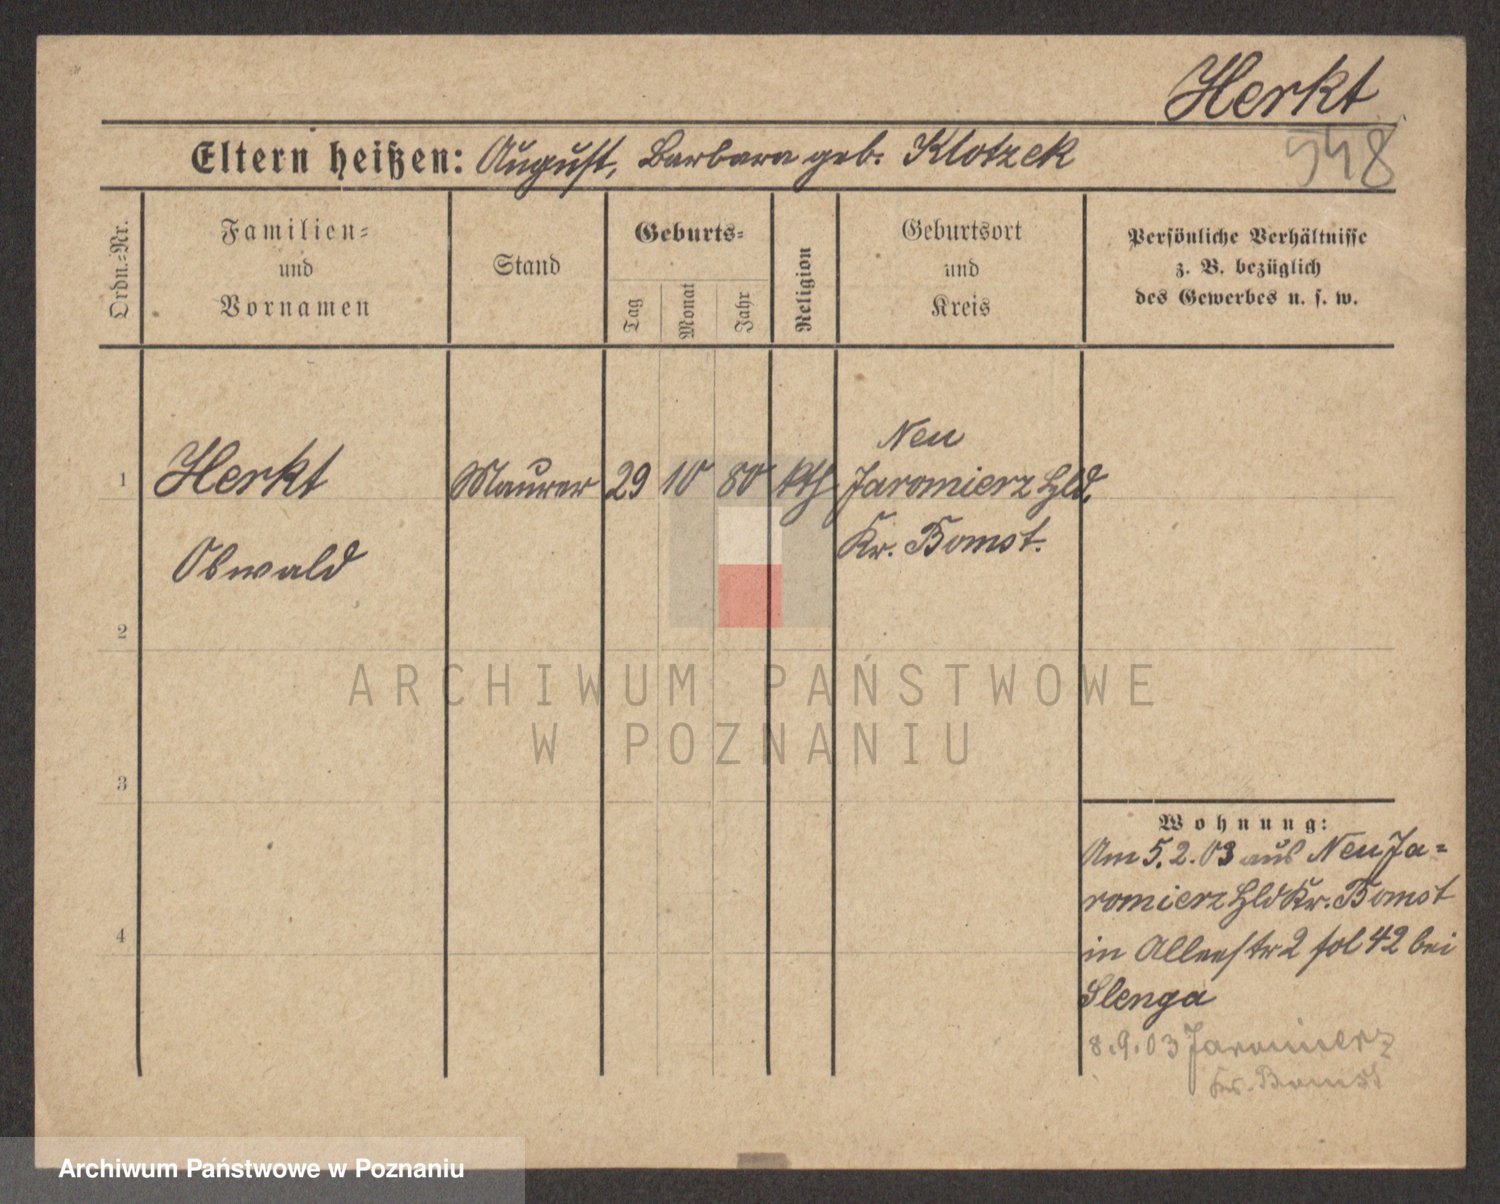 Herkt
948
Eltern heißen: August, Barbara geb. Klotzek
Ordn.-Nr.
Familien-
und
Vornamen
Stand
Geburts-
Tag
Monat
Jahr
Religion
Geburtsort
und
Kreis
Persönliche Verhältnisse
z. B. bezüglich
des Gewerbes u. s. w.
Neu
1 Herkt Maurer 29 10 80 kth Jaromierz Hld.
Kr. Bomst.
Oswald
2
ARCHIWUM PAŃSTWOWE
W POZNANIU
3
Wohnung:
Am 5.2.03 aus Neu Ja-
romierz Hld Kr. Bomst
4 in Alleestr 2 fol 42 bei
Slenga
8.9.03 Jaromierz
Kr. Bomst
Archiwum Państwowe w Poznaniu